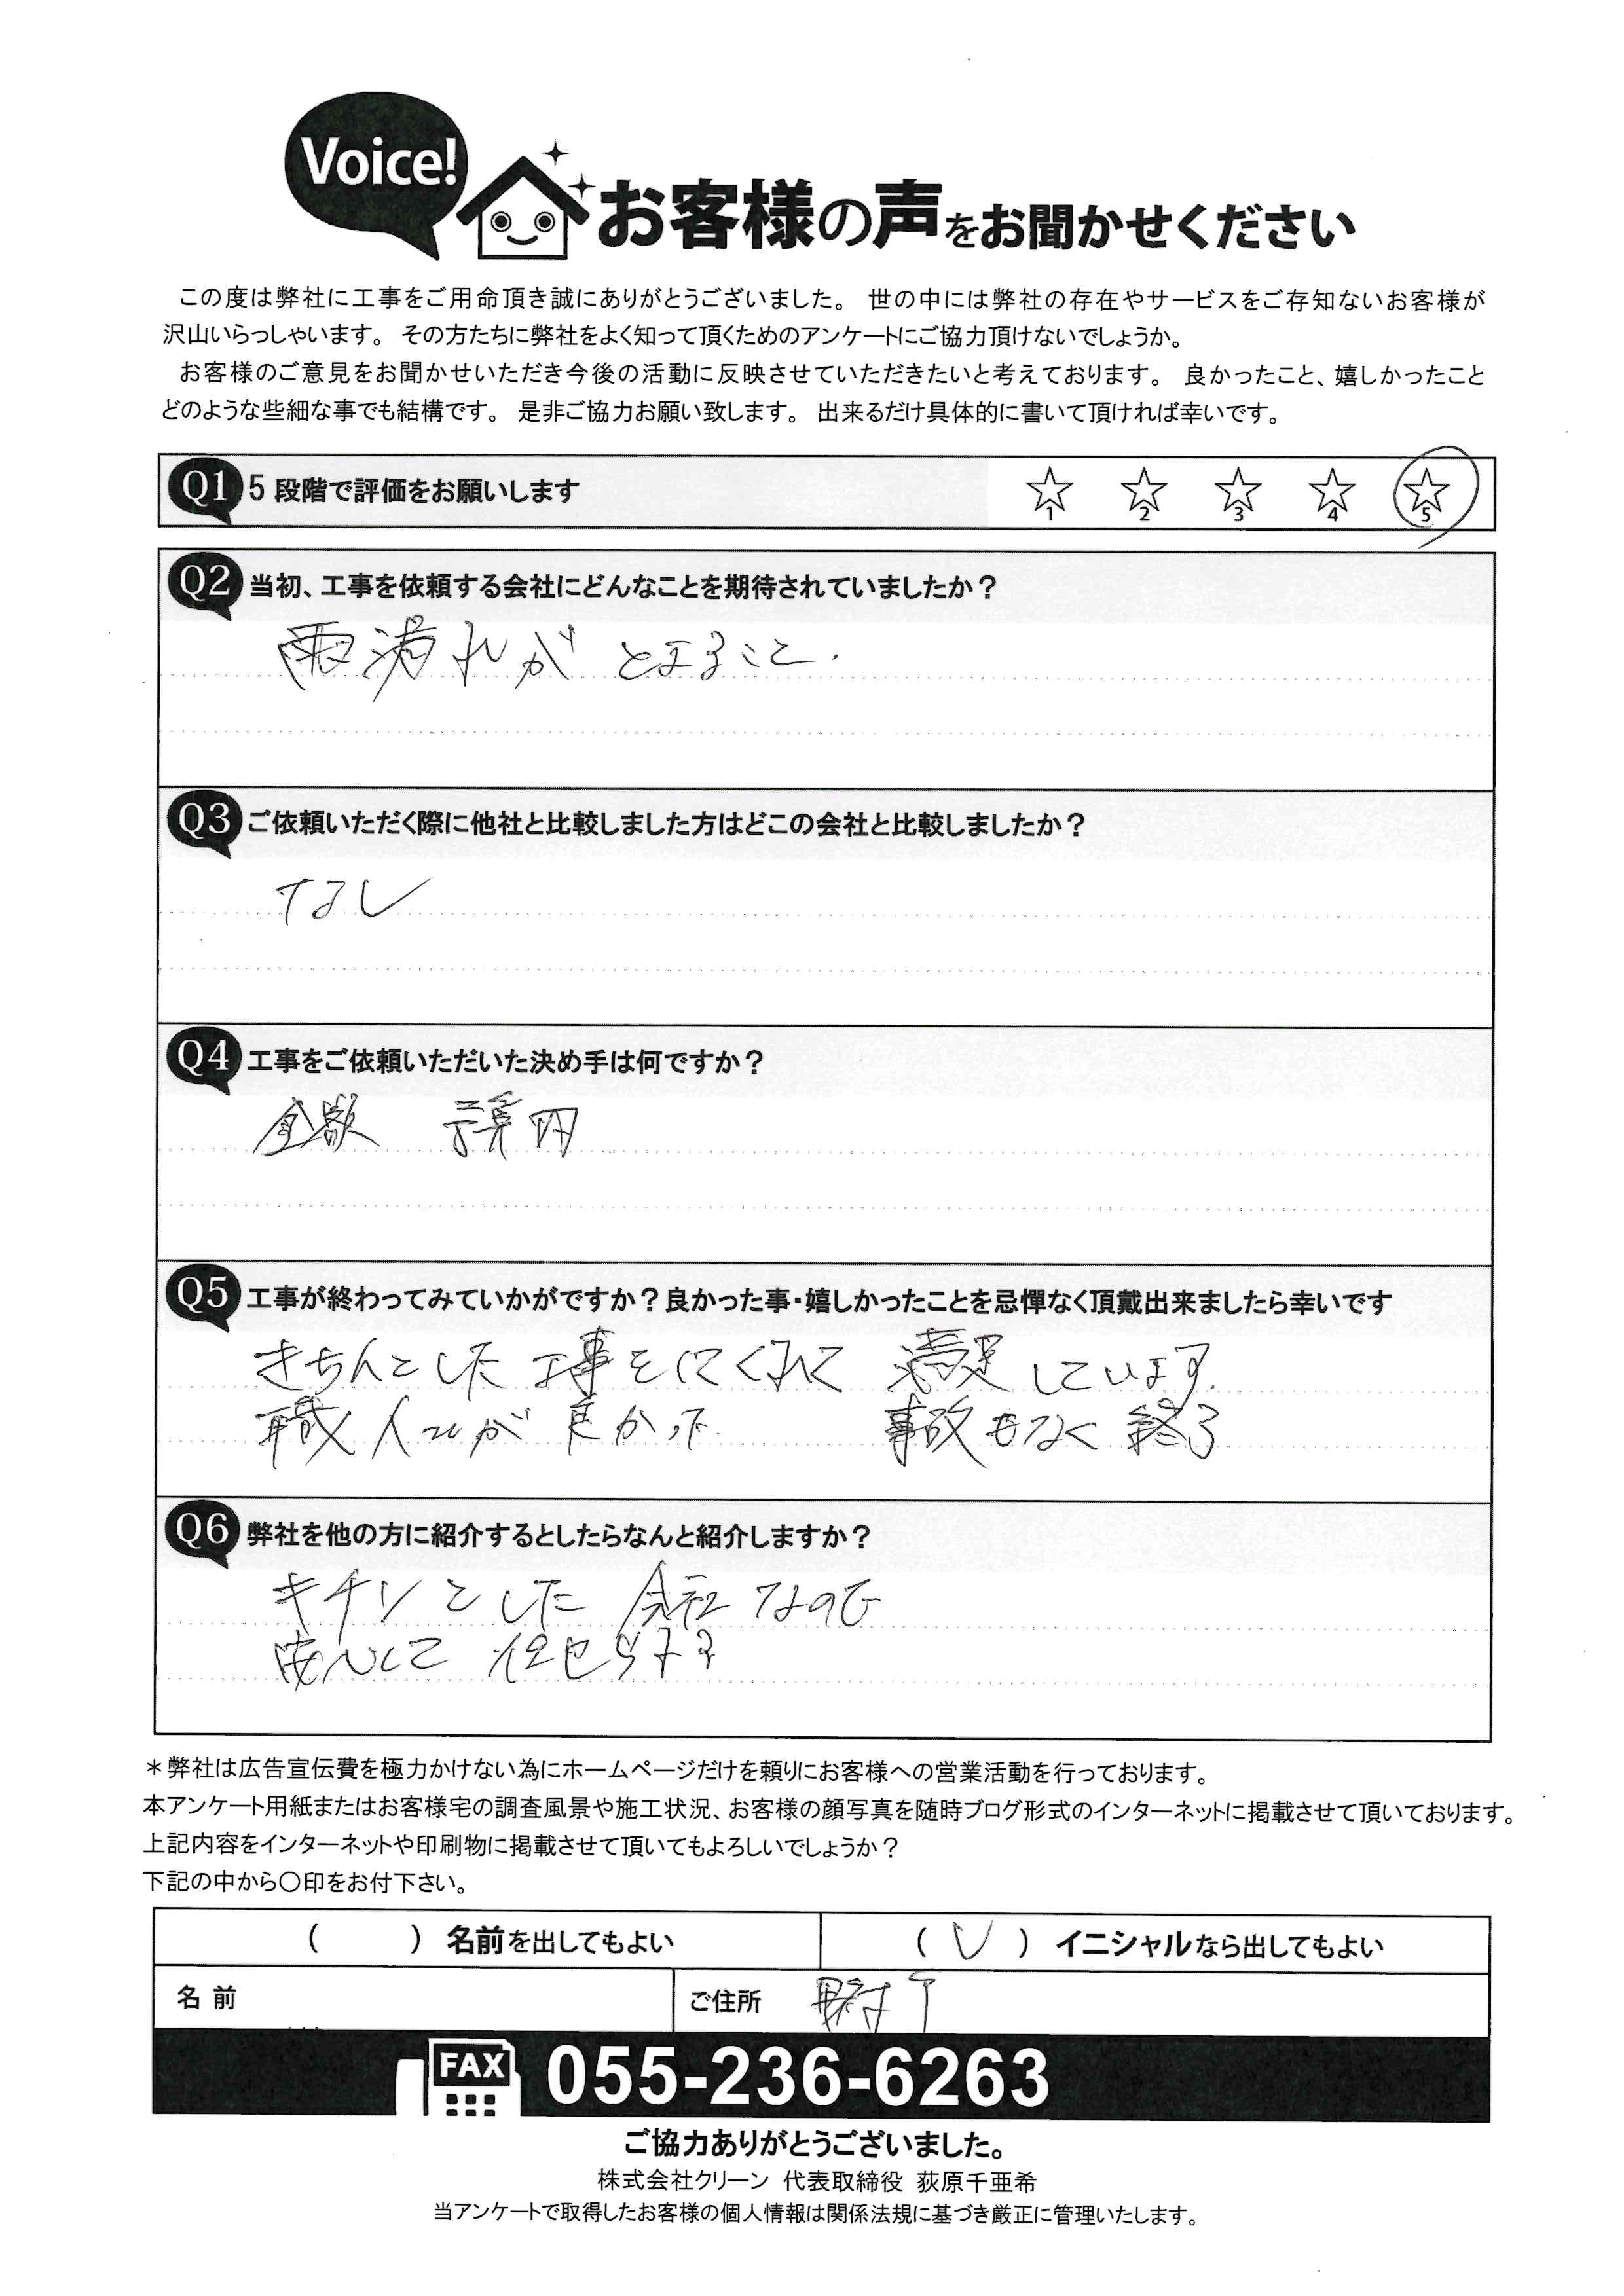 Voice!
お客様の声をお聞かせください
この度は弊社に工事をご用命頂き誠にありがとうございました。 世の中には弊社の存在やサービスをご存知ないお客様が
沢山いらっしゃいます。 その方たちに弊社をよく知って頂くためのアンケートにご協力頂けないでしょうか。
お客様のご意見をお聞かせいただき今後の活動に反映させていただきたいと考えております。 良かったこと、嬉しかったこと
どのような些細な事でも結構です。 是非ご協力お願い致します。 出来るだけ具体的に書いて頂ければ幸いです。
Q1 5 段階で評価をお願いします ☆1 ☆2 ☆3 ☆4 ☆5
Q2 当初、工事を依頼する会社にどんなことを期待されていましたか？
雨漏れが とまること.
Q3 ご依頼いただく際に他社と比較しました方はどこの会社と比較しましたか？
なし
Q4 工事をご依頼いただいた決め手は何ですか？
金額 予算内
Q5 工事が終わってみていかがですか？良かった事・嬉しかったことを忌憚なく頂戴出来ましたら幸いです
きちんとした 工事をしてくれて 満足 しています.
職人さんが 良かった 事故もなく 終了
Q6 弊社を他の方に紹介するとしたらなんと紹介しますか？
キチンとした 会社なので
安心して 任せられる
＊弊社は広告宣伝費を極力かけない為にホームページだけを頼りにお客様への営業活動を行っております。
本アンケート用紙またはお客様宅の調査風景や施工状況、お客様の顔写真を随時ブログ形式のインターネットに掲載させて頂いております。
上記内容をインターネットや印刷物に掲載させて頂いてもよろしいでしょうか？
下記の中から〇印をお付下さい。
（ ）名前を出してもよい （ レ ）イニシャルなら出してもよい
名 前 ご住所
FAX 055-236-6263
ご協力ありがとうございました。
株式会社クリーン 代表取締役 荻原千亜希
当アンケートで取得したお客様の個人情報は関係法規に基づき厳正に管理いたします。